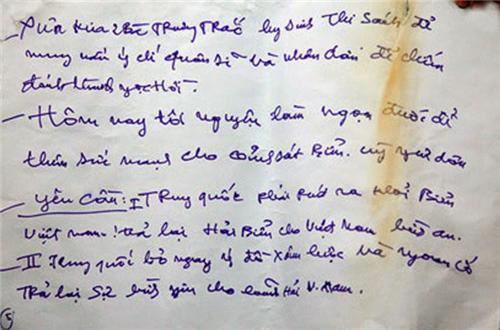 - Xưa kia 2 Bà Trưng Trắc hy sinh Thi Sách để
nung nấu ý chí quân sĩ và nhân dân để chiến
đánh thành
- Hôm nay tôi nguyện làm ngọn đuốc để
thêm sức mạnh cho cảnh sát Biển. ngư dân
- Yêu Cầu: I Trung quốc phải rút ra khỏi Biển
Việt nam. trả lại Hải Biển cho Việt Nam bình an.
- II Trung quốc bỏ ngay ý đồ xâm lược và ngoan cố
Trả lại Sự bình yên cho lãnh Hải V. Nam.
5